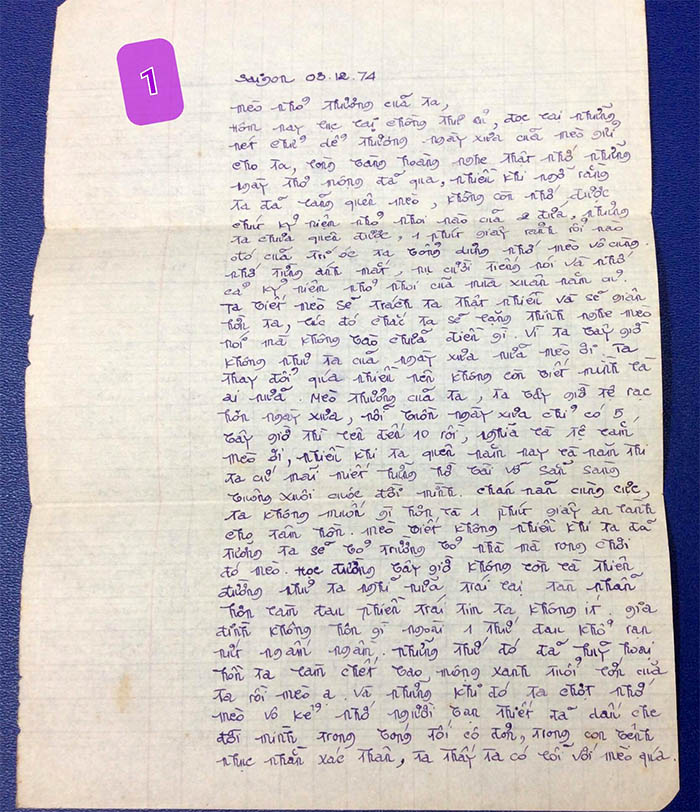 1
Saigon 03.12.74
mèo nhỏ thương của ta,
Hôm nay lục lại chồng thư cũ, đọc lại những
nét chữ dễ thương ngày xưa của mèo gửi
cho ta, lòng bàng hoàng nghe thật nhớ những
ngày thơ mộng đã qua, nhiều khi ngỡ rằng
ta đã lãng quên mèo, không còn nhớ được
chút kỷ niệm nhỏ nhoi nào của 2 đứa, nhưng
ta chưa quên được, 1 phút giây rảnh rỗi nào
đó của trí óc ta bỗng dưng nhớ mèo vô cùng.
nhớ từng ánh mắt, nụ cười tiếng nói và nhớ
cả kỷ niệm nhỏ nhoi của mùa xuân năm cũ.
Ta biết mèo sẽ trách ta thật nhiều và sẽ giận
hờn ta, lúc đó chắc ta sẽ lặng thinh nghe mèo
nói mà không bào chữa điều gì. Vì ta bây giờ
không như ta của ngày xưa nữa mèo ơi. Ta
thay đổi quá nhiều nên không còn biết mình là
ai nữa. Mèo thương của ta, ta bây giờ tệ rạc
hơn ngày xưa, nỗi buồn ngày xưa chỉ có 5,
bây giờ thì lên đến 10 rồi, nghĩa là tệ lắm
mèo ơi, nhiều khi ta quên năm nay là năm thi
ta cứ mãi miết hững hờ bài vở sẵn sàng
buông xuôi cuộc đời mình. chán nản cùng cực,
ta không muốn gì hơn là 1 phút giây an lành
cho tâm hồn. mèo biết không nhiều khi ta đã
tưởng ta sẽ bỏ trường bỏ nhà mà rong chơi
đó mèo. Học đường bây giờ không còn là thiên
đường như ta nghĩ nữa trái lại tàn nhẫn
hơn làm đau phiền trái tim ta không ít. gia
đình không hơn gì ngoài 1 thứ đau khổ rạn
nứt ngấm ngầm. những thứ đó đã huỷ hoại
hồn ta làm chết bao mộng xanh tuổi lớn của
ta rồi mèo ạ. và những khi đó ta chợt nhớ
mèo vô kể nhớ người bạn thiết đã dấu che
đời mình trong bóng tối cô đơn, trong cơn bệnh
nhục nhằn xác thân, ta thấy ta có lỗi với mèo quá.